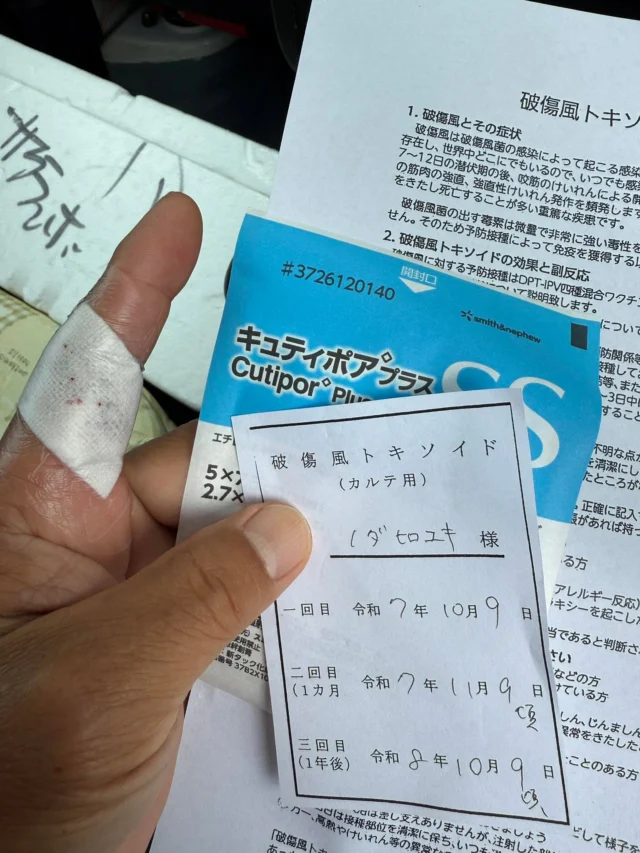 破傷風トキソ
1. 破傷風とその症状
破傷風は破傷風菌の感染によって起こる感染
存在し、世界中どこにでもいるので、いつでも感染
7～12日の潜伏期の後、咬筋のけいれんによる開
の筋肉の強直、強直性けいれん発作を頻発しま
をきたし死亡することが多い重篤な疾患です。
破傷風菌の出す毒素は微量で非常に強い毒性を
せん。そのため予防接種によって免疫を獲得する以
2. 破傷風トキソイドの効果と副反応
破傷風に対する予防接種はDPT-IPV四種混合ワクチ
について説明致します。
#3726120140
開封口
smith&nephew
キュティポアプラス
Cutipor Plu
SS
エチ
5×
2.7×
破傷風トキソイド
(カルテ用)
ノダヒロユキ 様
一回目 令和7年10月9日
二回目 令和7年11月9日
(1カ月 頃
三回目 令和8年10月9日
(1年後) 頃
不明な点か
を清潔にし
たところが
正確に記入
があれば持っ
る方
アレルギー反応)
キシーを起こした
当であると判断さ
さい
などの方
けている方
しん、じんましん
異常をきたした
ことのある方
は差し支えありませんが、注射した部
は接種部位を清潔に保ち、いつも
高熱やけいれん等の異常な
「破傷風トキソイ